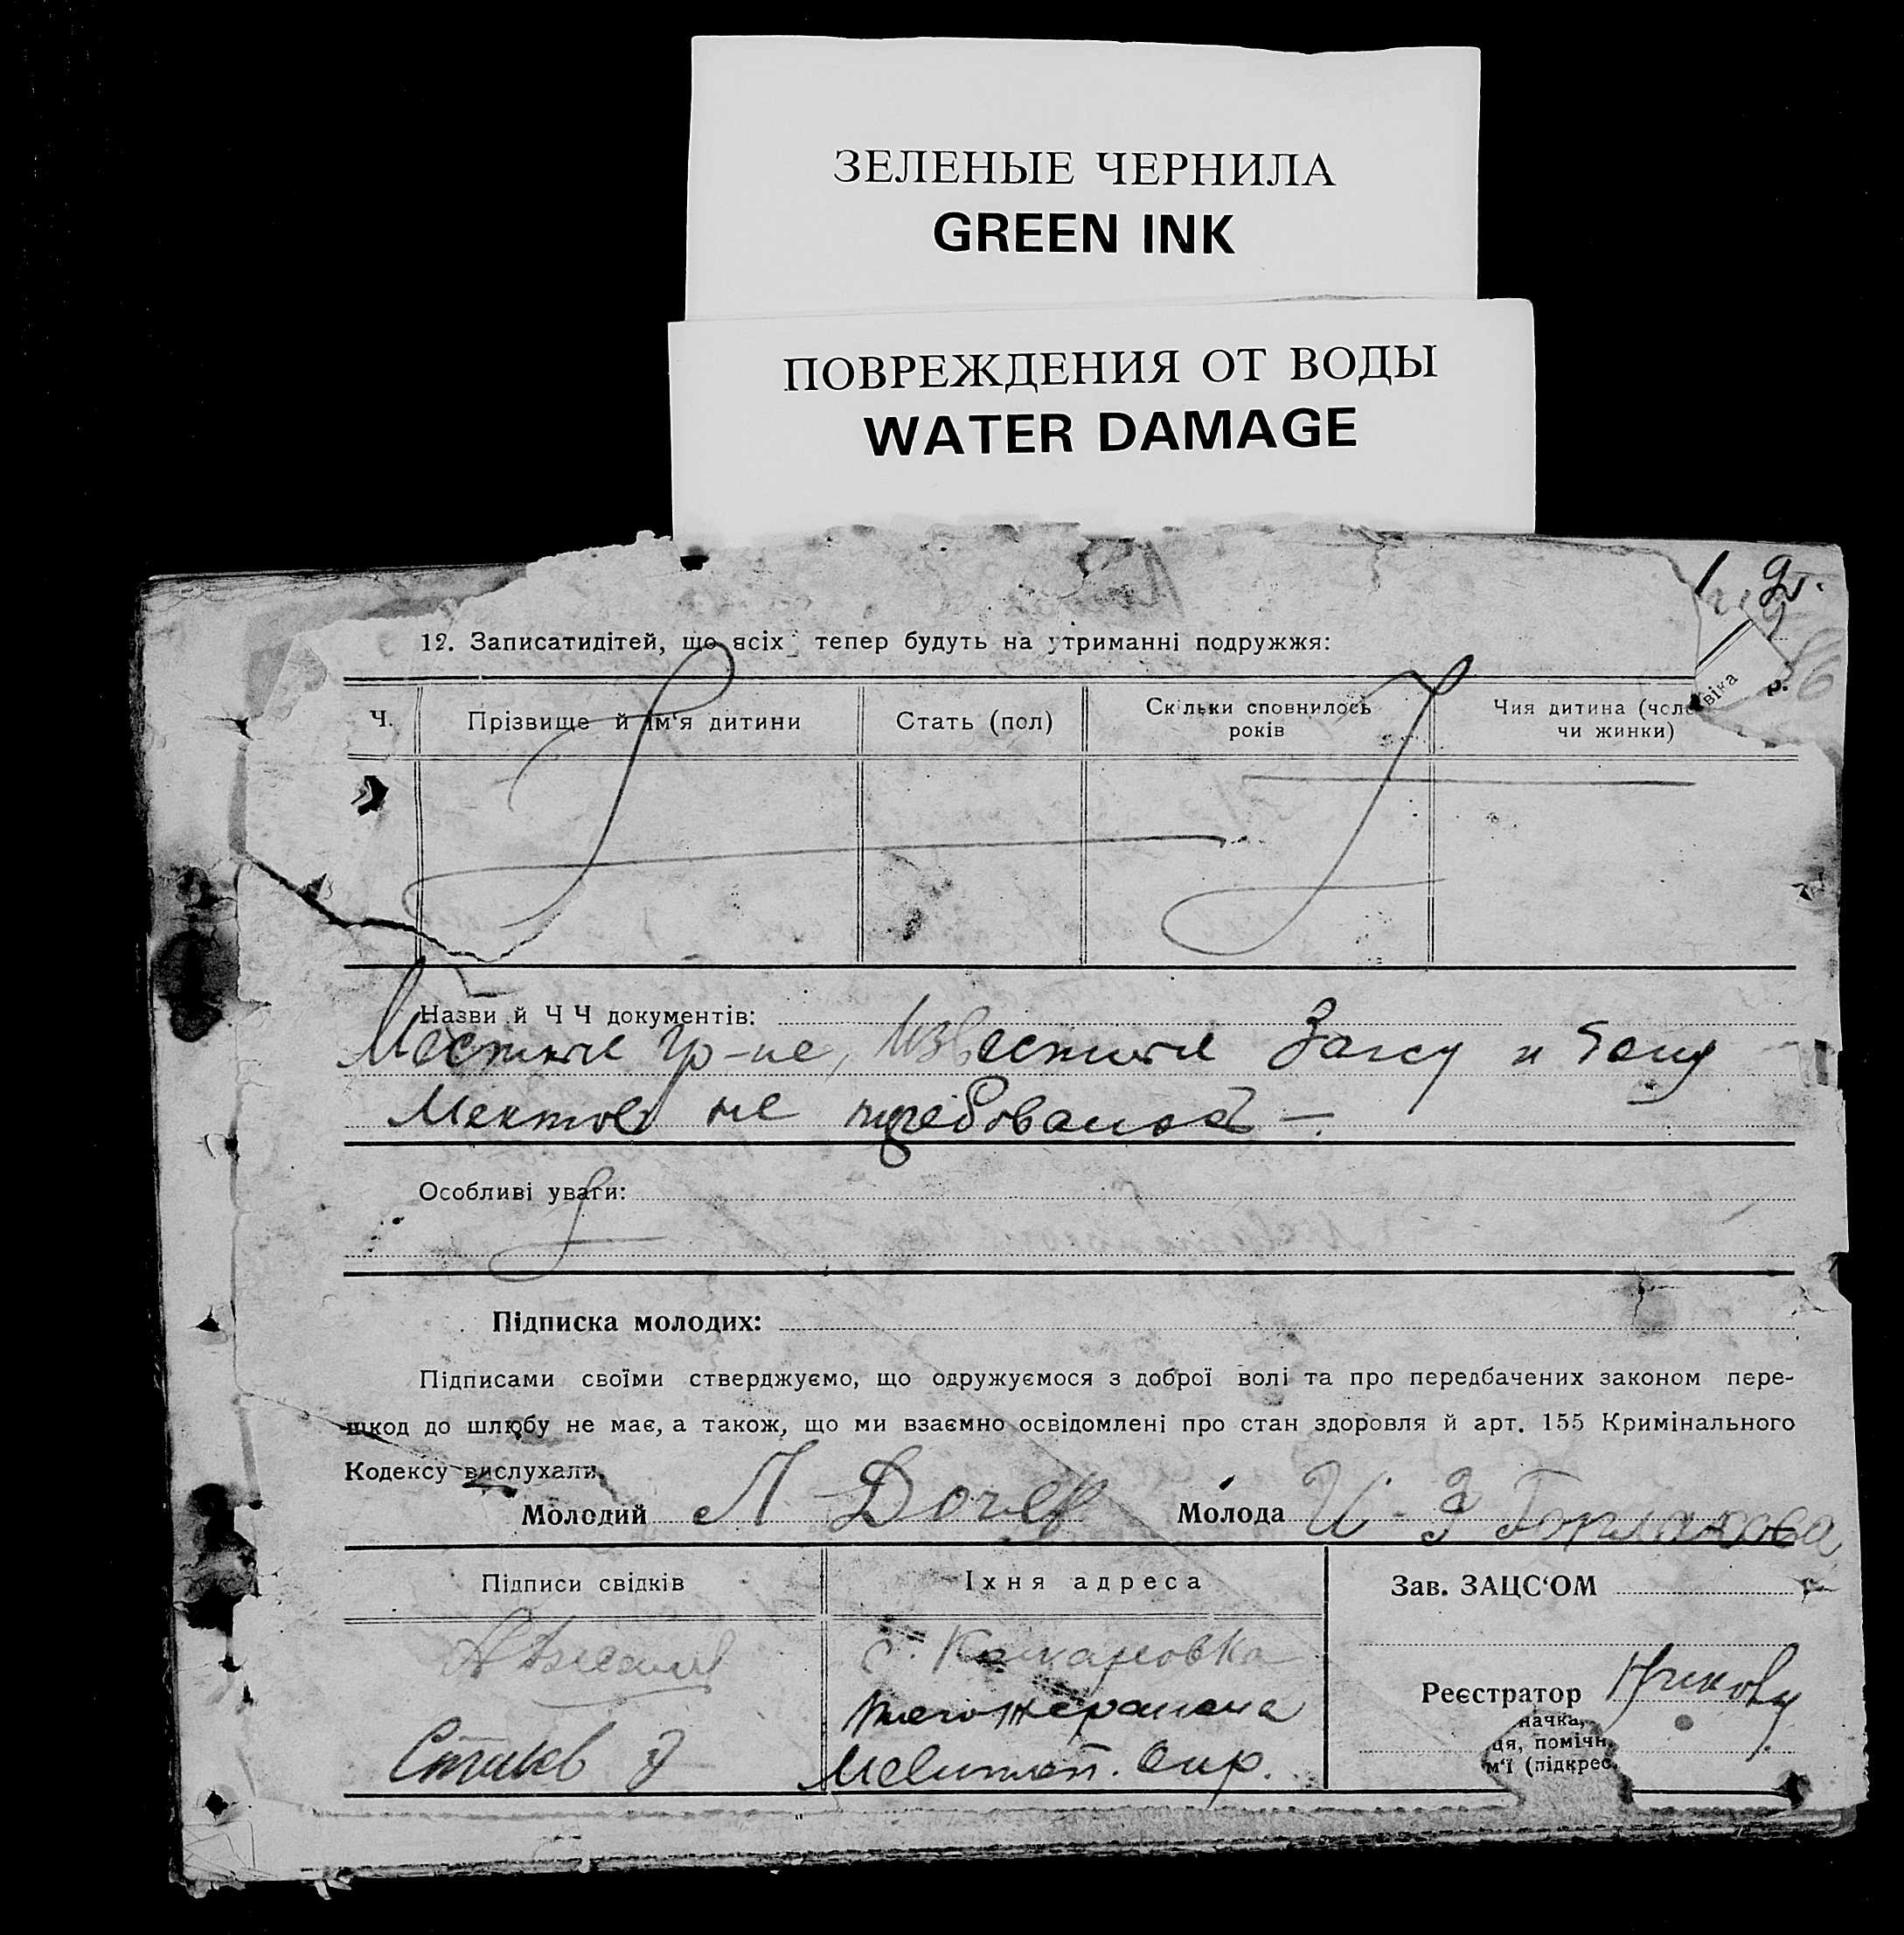 ЗЕЛЕНЫЕ ЧЕРНИЛА
GREEN INK
ПОВРЕЖДЕНИЯ ОТ ВОДЫ
WATER DAMAGE
12. Записатидітей, що всіх тепер будуть на утриманні подружжя:
Ч.
Прізвище й ім‘я дитини
Стать (пол)
Скільки сповнилось
років
Чия дитина (чоловіка
чи жинки)
Назви й Ч Ч документів:
Местные гр-не, Известные Загсу и
не требовалось —.
Особливі уваги:
Підписка молодих:
Підписами своїми стверджуємо, що одружуємося з доброї волі та про передбачених законом пере-
шкод до шлюбу не має, а також, що ми взаємно освідомлені про стан здоровля й арт. 155 Кримінального
Кодексу вислухали.
Молодий Л Дочев Молода И. З Горлахова
Підписи свідків
Їхня адреса
Зав. ЗАЦС‘ОМ
Мелитоп. Окр.
Реєстратор
начка,
ця, помічн.
м‘ї (підкрес.